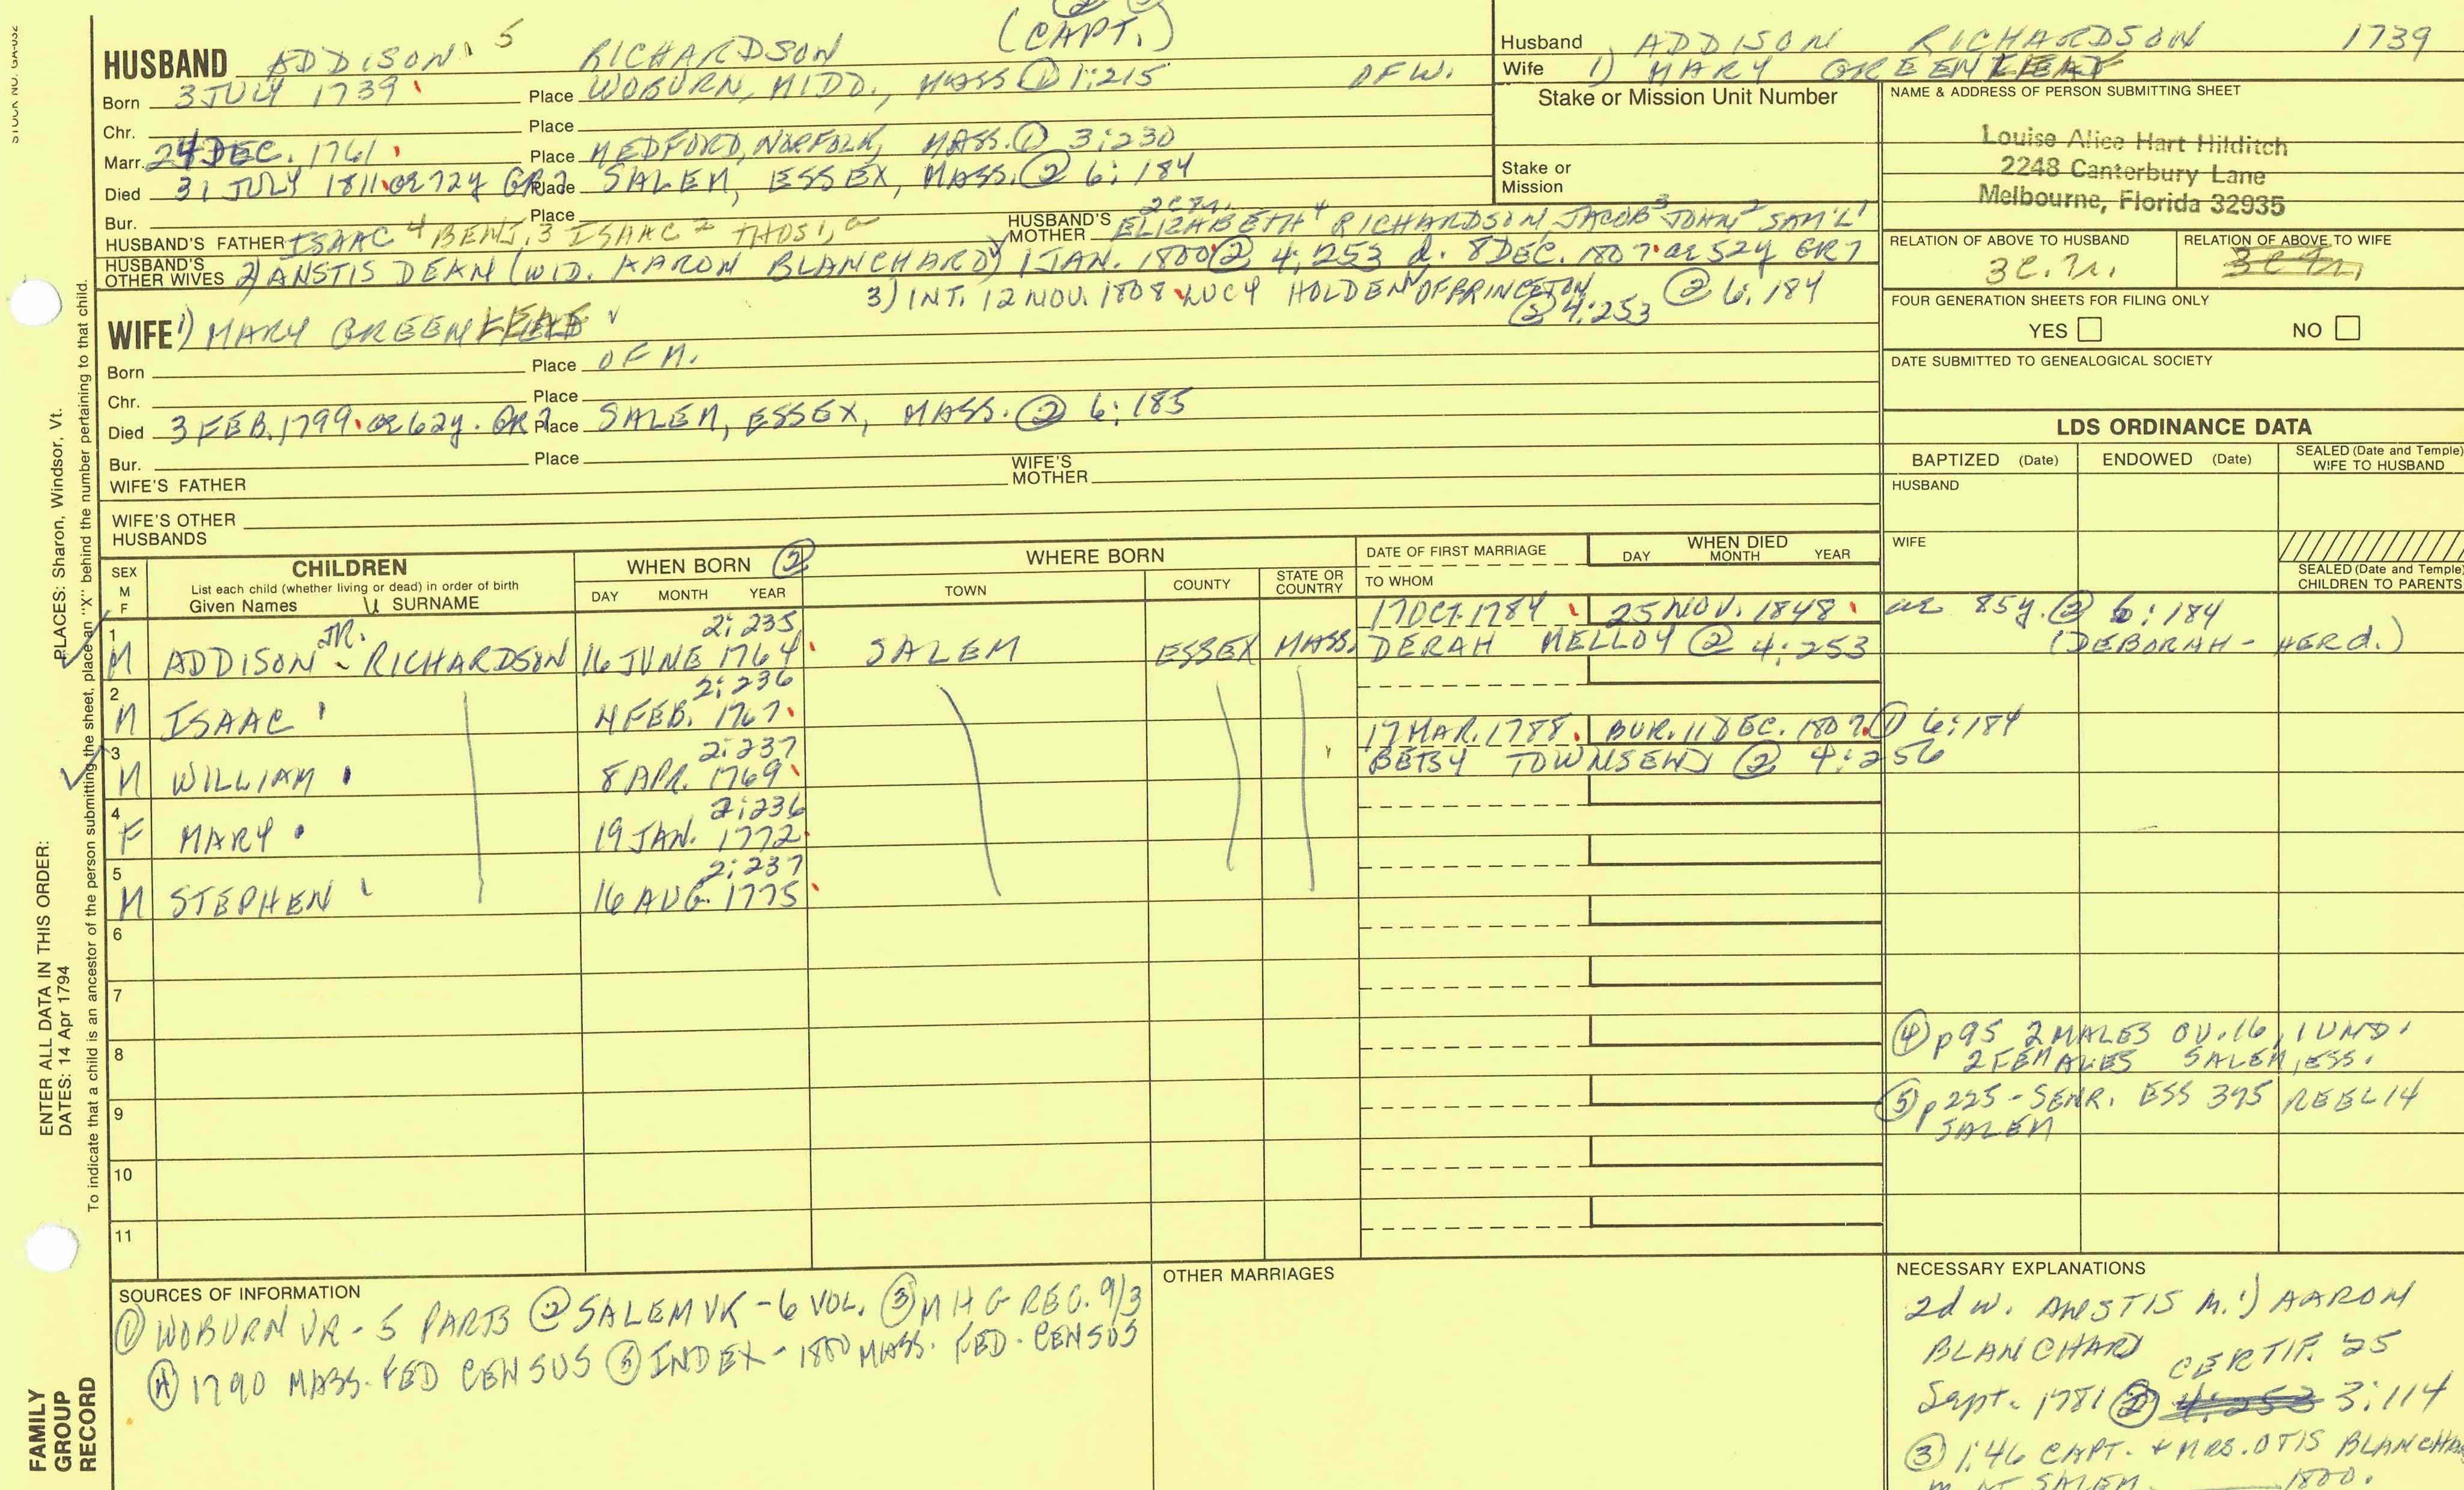 STOCK NO. GA-032
(CAPT.)
HUSBAND ADDISON 5 RICHARDSON
Born 3 JULY 1739 Place WOBURN, MIDD., MASS ① 1:215 OF W.
Chr. Place
Marr. 24 DEC. 1761 Place MEDFORD, NORFOLK, MASS. ① 3:230
Died 31 JULY 1811 ae 72y GR7 Place SALEM, ESSEX, MASS. ② 6:184
Bur. Place
HUSBAND'S FATHER ISAAC 4 BENJ. 3 ISAAC 2 THOS 1
HUSBAND'S MOTHER ELIZABETH 4 RICHARDSON, JACOB 3 JOHN 2 SAM'L 1
HUSBAND'S OTHER WIVES 2) ANSTIS DEAN (WID. AARON BLANCHARD) 1 JAN. 1800 ② 4:253 d. 8 DEC. 1807 ae 52y GR7
3) INT. 12 NOV. 1808 LUCY HOLDEN OF PRINCETON ② 6:184
② 4:253
WIFE 1) MARY GREENLEAF
Born Place OF M.
Chr. Place
Died 3 FEB. 1799 ae 62y. GR7 Place SALEM, ESSEX, MASS. ② 6:185
Bur. Place
WIFE'S FATHER WIFE'S MOTHER
WIFE'S OTHER HUSBANDS
Husband ADDISON RICHARDSON 1739
Wife 1) MARY GREENLEAF
Stake or Mission Unit Number
Stake or Mission
NAME & ADDRESS OF PERSON SUBMITTING SHEET
Louise Alice Hart Hilditch
2248 Canterbury Lane
Melbourne, Florida 32935
RELATION OF ABOVE TO HUSBAND RELATION OF ABOVE TO WIFE
3c.7r.
FOUR GENERATION SHEETS FOR FILING ONLY
YES NO
DATE SUBMITTED TO GENEALOGICAL SOCIETY
LDS ORDINANCE DATA
BAPTIZED (Date) ENDOWED (Date) SEALED (Date and Temple) WIFE TO HUSBAND
HUSBAND
WIFE
SEALED (Date and Temple) CHILDREN TO PARENTS
SEX M F
CHILDREN
List each child (whether living or dead) in order of birth
Given Names SURNAME
WHEN BORN ②
DAY MONTH YEAR
WHERE BORN
TOWN COUNTY STATE OR COUNTRY
DATE OF FIRST MARRIAGE
TO WHOM
WHEN DIED
DAY MONTH YEAR
2:235 17 OCT. 1784 25 NOV. 1848 ae 85y. ② 6:184
1 M ADDISON JR. RICHARDSON 16 JUNE 1764 SALEM ESSEX MASS. DERAH MELLOY ② 4:253 (DEBORAH - HER d.)
2:236
2 M ISAAC 4 FEB. 1767
2:237 17 MAR. 1788 BUR. 11 DEC. 1807 ① 6:184
3 M WILLIAM 8 APR. 1769 BETSY TOWNSEND ② 4:256
2:236
4 F MARY 19 JAN. 1772
2:237
5 M STEPHEN 16 AUG. 1775
6
7
8
9
10
11
④ p95 2 MALES OV. 16, 1 UND.
2 FEMALES SALEM, ESS.
⑤ p225 - SENR. ESS 395 REEL 14
SALEM
SOURCES OF INFORMATION
① WOBURN VR - 5 PARTS ② SALEM VR - 6 VOL. ③ M H G REG. 9/3
④ 1790 MASS. FED CENSUS ⑤ INDEX - 1800 MASS. FED. CENSUS
OTHER MARRIAGES
NECESSARY EXPLANATIONS
2d W. ANSTIS M. 1) AARON
BLANCHARD CERTIF. 25
Sept. 1781 ② 4:253 3:114
③ 1:46 CAPT. + MRS. OTIS BLANCHA
SALEM 1800.
PLACES: Sharon, Windsor, Vt.
ENTER ALL DATA IN THIS ORDER:
DATES: 14 Apr 1794
To indicate that a child is an ancestor of the person submitting the sheet, place an "X" behind the number pertaining to that child.
FAMILY
GROUP
RECORD